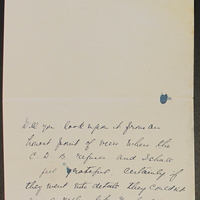 Will you look upon it from an
honest point of view when the
C. D. B. refuses and I shall
feel grateful certainly if
they went into details they could not